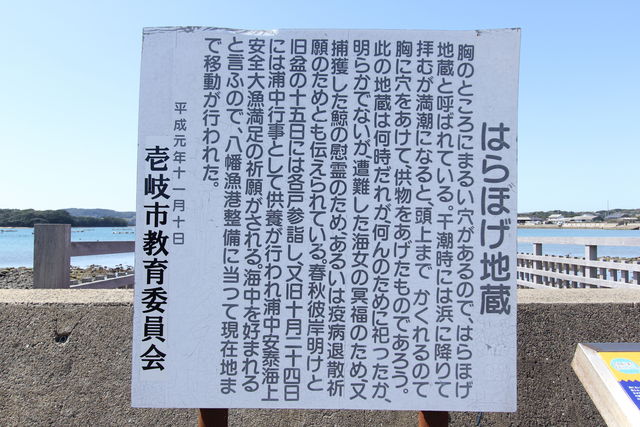 はらぼげ地蔵
胸のところにまるい穴があるので、はらほげ
地蔵と呼ばれている。干潮時には浜に降りて
拝むが満潮になると、頭上まで かくれるので
胸に穴をあけて、供物をあげたものであろう。
此の地蔵は何時だれが何んのために祀ったか、
明らかでないが、遭難した海女の冥福のため、又
捕獲した鯨の慰霊のため、あるいは疫病退散祈
願のためとも伝えられている。春秋彼岸明けと
旧盆の十五日には各戸参詣し、又旧十月二十四日
には浦中行事として供養が行われ浦中安泰海上
安全大漁満足の祈願がされる。海中を好まれる
と言ふので、八幡漁港整備に当って現在地ま
で移動が行われた。
平成元年十一月十日
壱岐市教育委員会